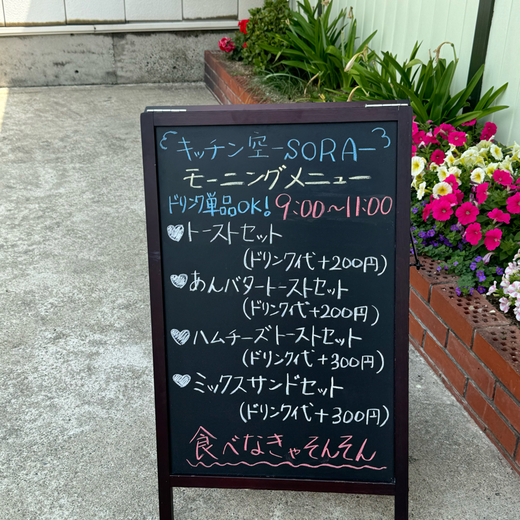 キッチン空-SORA-
モーニングメニュー
ドリンク単品OK! 9:00~11:00
トーストセット
(ドリンク代+200円)
あんバタートーストセット
(ドリンク代+200円)
ハムチーズトーストセット
(ドリンク代+300円)
ミックスサンドセット
(ドリンク代+300円)
食べなきゃそんそん